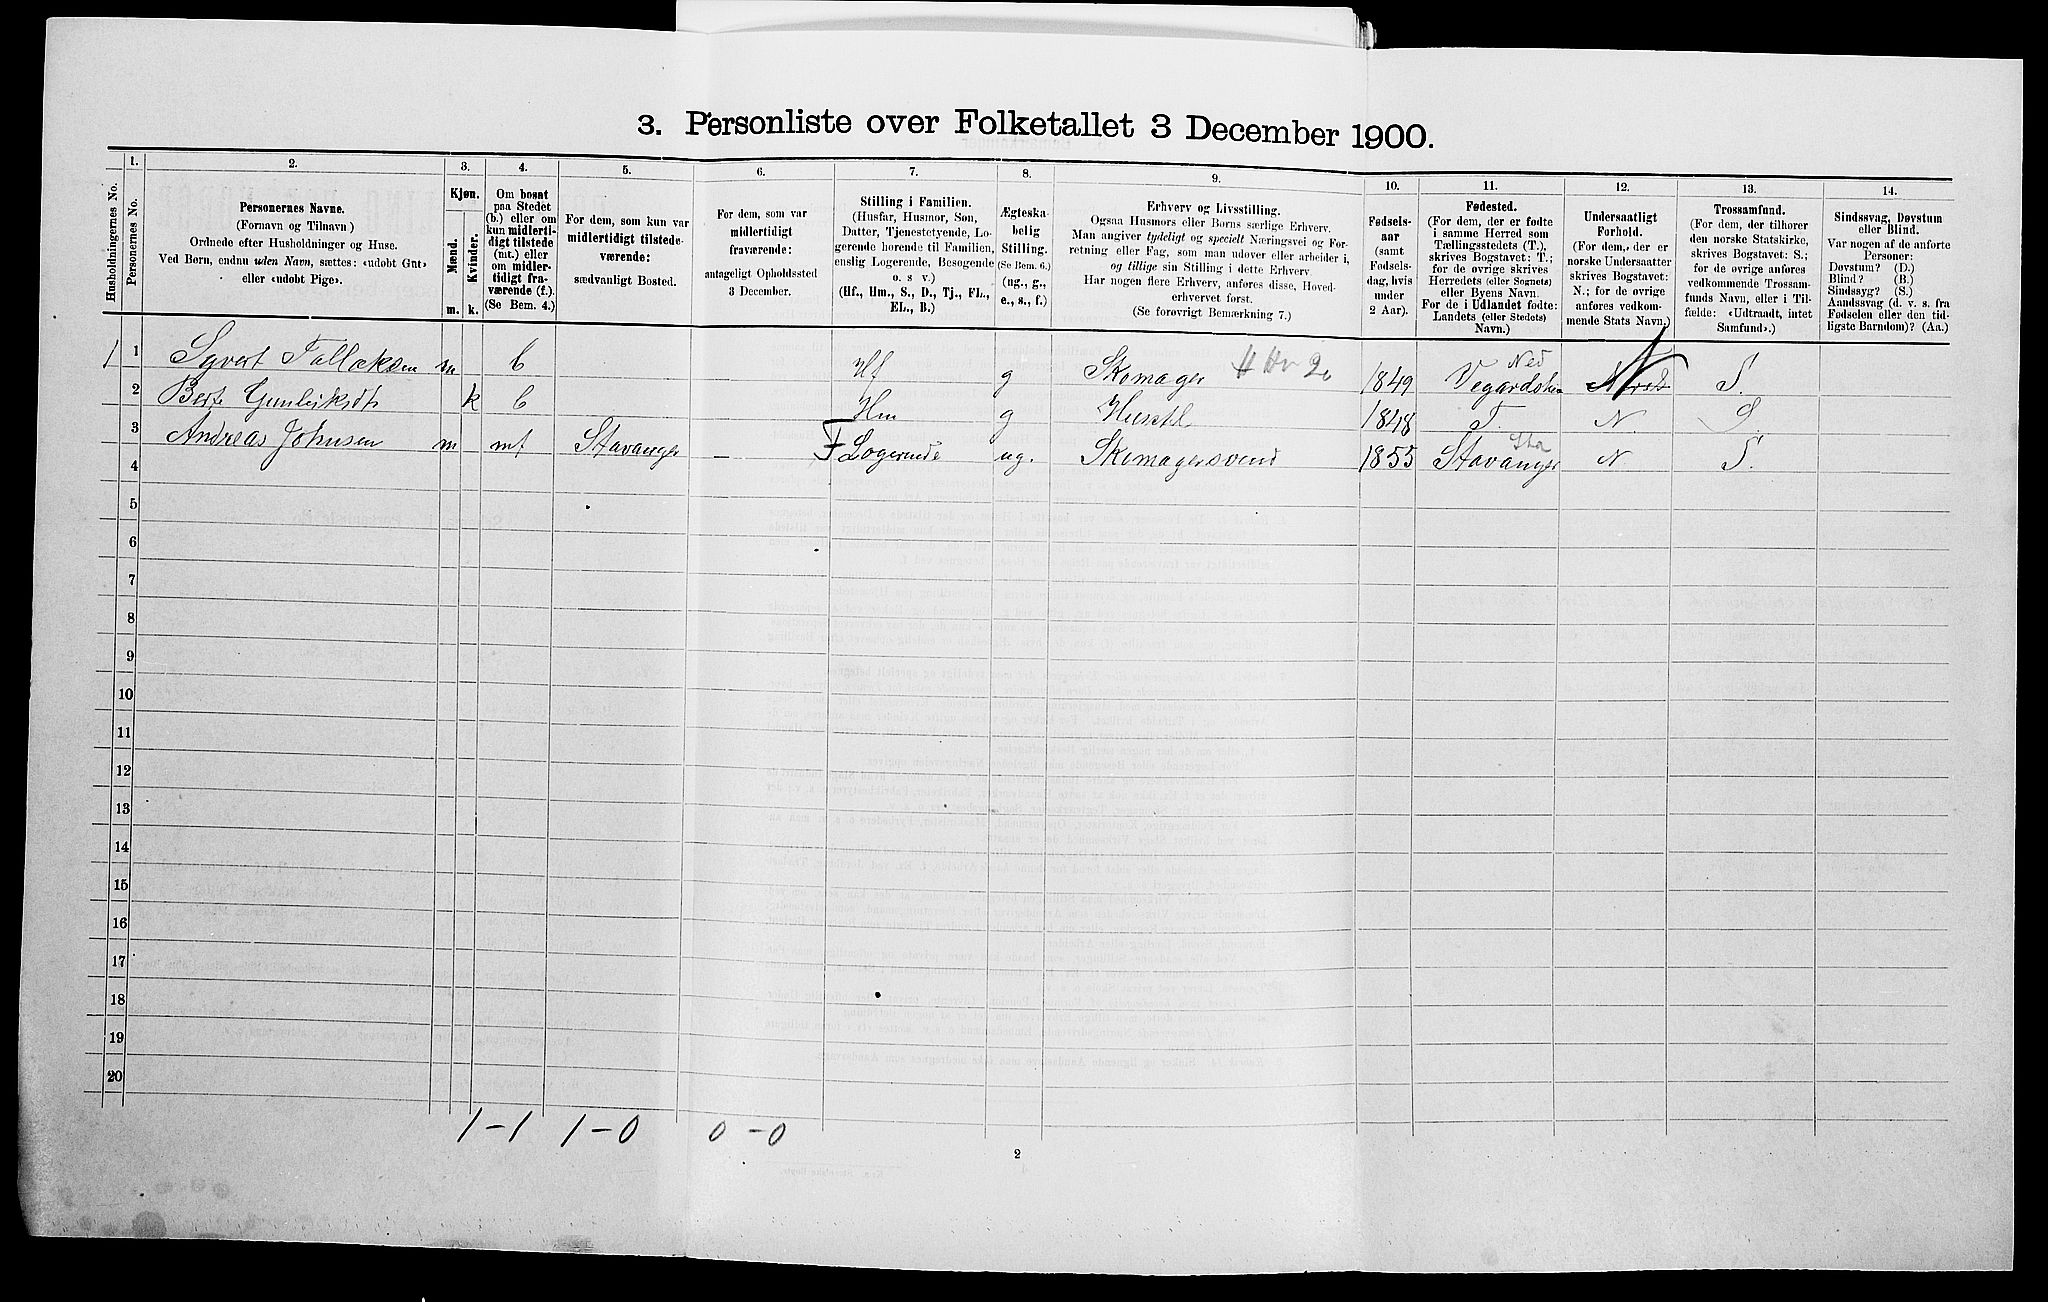 3. Personliste over Folketallet 3 December 1900.
1. 2. 3. 4. 5. 6. 7. 8. 9. 10. 11. 12. 13. 14.
Husholdningernes No.
Personernes No.
Personernes Navne.
(Fornavn og Tilnavn)
Ordnede efter Husholdninger og Huse.
Ved Børn, endnu uden Navn, sættes: «udøbt Gut»
eller «udøbt Pige».
Kjøn.
Mænd.
Kvinder.
m. k.
Om bosat
paa Stedet
(b.) eller om
kun midlerti-
digt tilstede
(mt.) eller
om midler-
tidigt fra-
værende (f.)
(Se Bem. 4.)
For dem, som kun var
midlertidigt tilstede-
værende:
sædvanligt Bosted.
For dem, som var
midlertidigt
fraværende:
antageligt Opholdssted
3 December.
Stilling i Familien.
(Husfar, Husmor, Søn,
Datter, Tjenestetyende, Lo-
gerende hørende til Familien,
enslig Logerende, Besøgende
o. s v.)
(Hf., Hm., S., D., Tj., FL.,
EL., B.)
Ægteska-
belig
Stilling.
(Se Bem. 6.)
(ug., g.,
e., s., f.)
Erhverv og Livsstilling.
Ogsaa Husmors eller Børns særlige Erhverv.
Man angiver tydeligt og specielt Næringsvei og For-
retning eller Fag, som man udøver eller arbeider i,
og tillige sin Stilling i dette Erhverv.
Har nogen flere Erhverv, anføres disse, Hoved-
erhvervet først.
(Se forøvrigt Bemærkning 7.)
Fødsels-
aar
(samt
Fødsels-
dag, hvis
under
2 Aar).
Fødested.
(For dem, der er fødte
i samme Herred som
Tællingsstedets (T.),
skrives Bogstavet: T.;
for de øvrige skrives
Herredets (eller Sognets)
eller Byens Navn.
For de i Udlandet fødte:
Landets (eller Stedets)
Navn.)
Undersaatligt
Forhold.
(For dem, der er
norske Undersaatter
skrives Bogstavet:
N.; for de øvrige
anføres vedkom-
mende Stats Navn.)
Trossamfund.
(For dem, der tilhører
den norske Statskirke,
skrives Bogstavet: S.;
for de øvrige anføres
vedkommende Trossam-
funds Navn, eller i Til-
fælde: «Udtraadt, intet
Samfund».)
Sindssvag, Døvstum
eller Blind.
Var nogen af de anførte
Personer:
Døvstum? (D.)
Blind? (B.)
Sindssyg? (S.)
Aandssvag (d. v. s. fra
Fødselen eller den tid-
ligste Barndom)? (Aa.)
1 1 Syvert Tallaksen m b Hf g Skomager 1849 Vegardshei Ned N S.
2 Berte Gunleiksdt k b Hm g Husstl 1848 T. N. S.
3 Andreas Johnsen m mt Stavanger — F Logerende ug. Skomagersvend 1855 Stavanger Sta N. S.
4
5
6
7
8
9
10
11
12
13
14
15
16
17
18
19
20
1-1 1-0 0-0
2